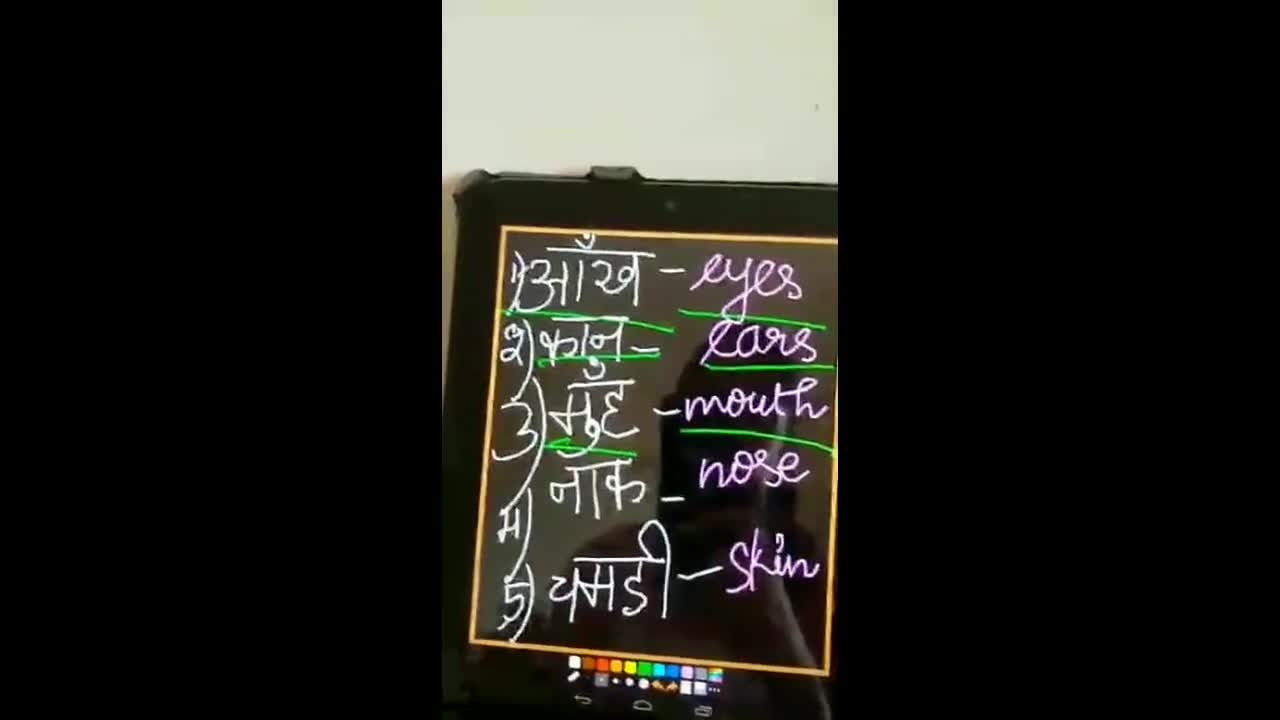 1) आँख - eyes
2) कान - ears
3) मुँह - mouth
4) नाक - nose
5) चमडी - skin